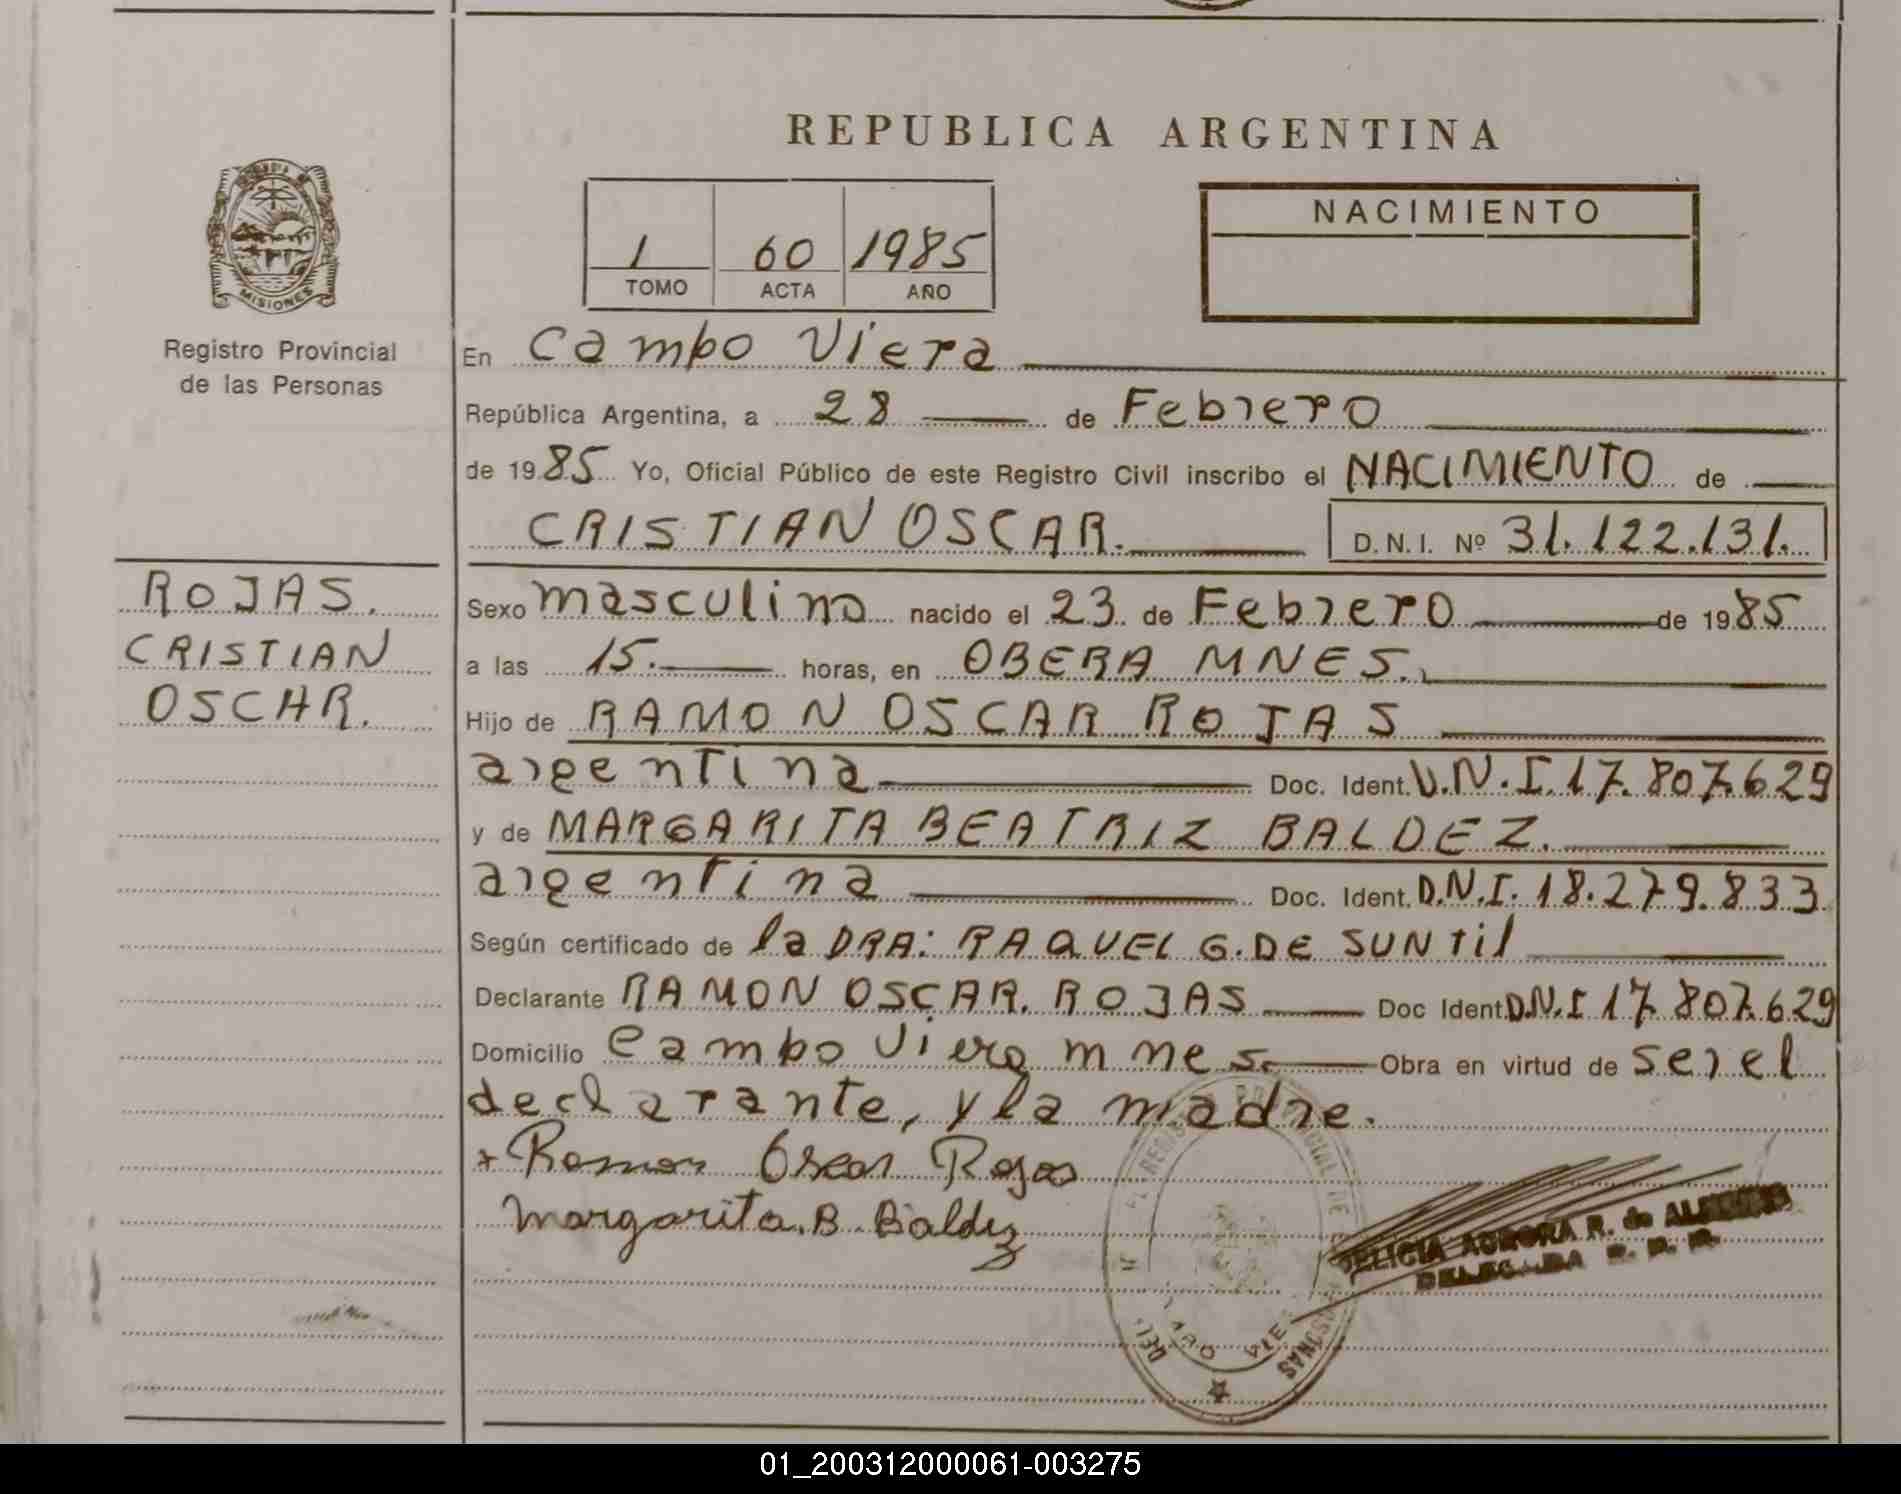 REPUBLICA ARGENTINA
NACIMIENTO
1 60 1985
TOMO ACTA AÑO
MISIONES
Registro Provincial
de las Personas
En Campo Viera
República Argentina, a 28 de Febrero
de 1985 Yo, Oficial Público de este Registro Civil inscribo el NACIMIENTO de
CRISTIAN OSCAR. D.N.I. Nº 31.122.131.
ROJAS.
CRISTIAN
OSCAR.
Sexo masculino nacido el 23 de Febrero de 1985
a las 15. horas, en OBERA MNES.
Hijo de RAMON OSCAR ROJAS
argentina Doc. Ident. D.N.I. 17.807.629
y de MARGARITA BEATRIZ BALDEZ.
argentina Doc. Ident. D.N.I. 18.279.833
Según certificado de la DRA: RAQUEL G. DE SUNTil
Declarante RAMON OSCAR. ROJAS Doc Ident. D.N.I 17.807.629
Domicilio Campo Viera mnes. Obra en virtud de ser el
declarante, y la madre.
Ramon Oscar Rojas
Margarita. B. Baldez
DELICIA AURORA R. de
DELEGADA R. P. P.
01_200312000061-003275